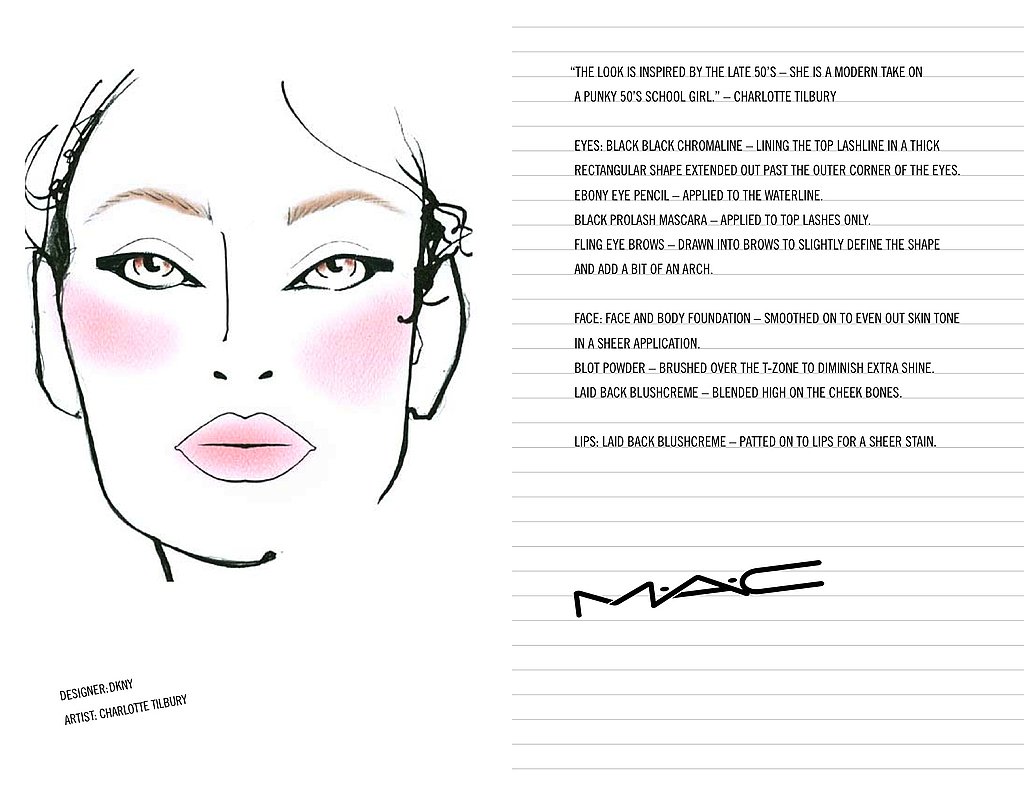 DESIGNER: DKNY
ARTIST: CHARLOTTE TILBURY
“THE LOOK IS INSPIRED BY THE LATE 50’S – SHE IS A MODERN TAKE ON
A PUNKY 50’S SCHOOL GIRL.” – CHARLOTTE TILBURY
EYES: BLACK BLACK CHROMALINE – LINING THE TOP LASHLINE IN A THICK
RECTANGULAR SHAPE EXTENDED OUT PAST THE OUTER CORNER OF THE EYES.
EBONY EYE PENCIL – APPLIED TO THE WATERLINE.
BLACK PROLASH MASCARA – APPLIED TO TOP LASHES ONLY.
FLING EYE BROWS – DRAWN INTO BROWS TO SLIGHTLY DEFINE THE SHAPE
AND ADD A BIT OF AN ARCH.
FACE: FACE AND BODY FOUNDATION – SMOOTHED ON TO EVEN OUT SKIN TONE
IN A SHEER APPLICATION.
BLOT POWDER – BRUSHED OVER THE T-ZONE TO DIMINISH EXTRA SHINE.
LAID BACK BLUSHCREME – BLENDED HIGH ON THE CHEEK BONES.
LIPS: LAID BACK BLUSHCREME – PATTED ON TO LIPS FOR A SHEER STAIN.
M·A·C